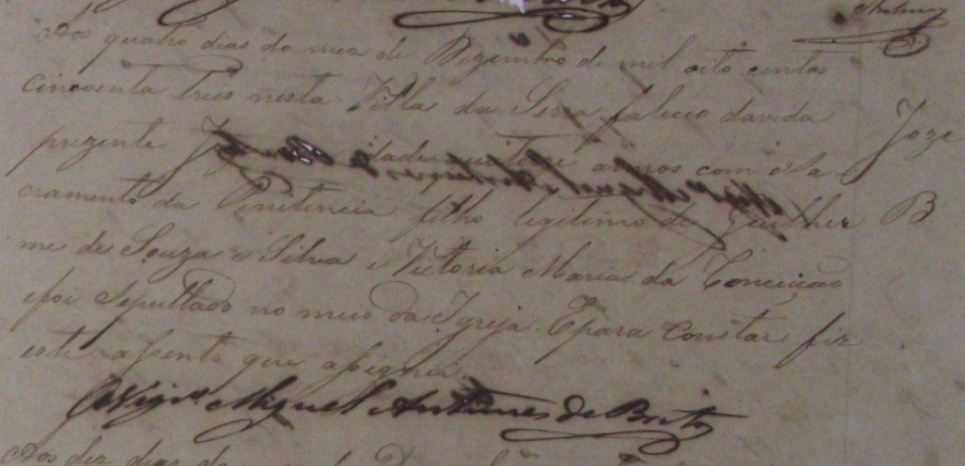 Aos quatro dias do mez de Dezembro de mil oito centos
cincoenta tres nesta Villa da Serra faleceo da vida
prezente Joze idade quinze annos com o Sa-
cramento da Penitencia filho legitimo de Guilher
me de Souza e Silva e Victoria Maria da Conceiçao
e foi sepultado no meio da Igreja. E para constar fiz
este assento que assignei.
O Vigro Miguel Antunes de Brito
Joze
B
Aos dez dias do